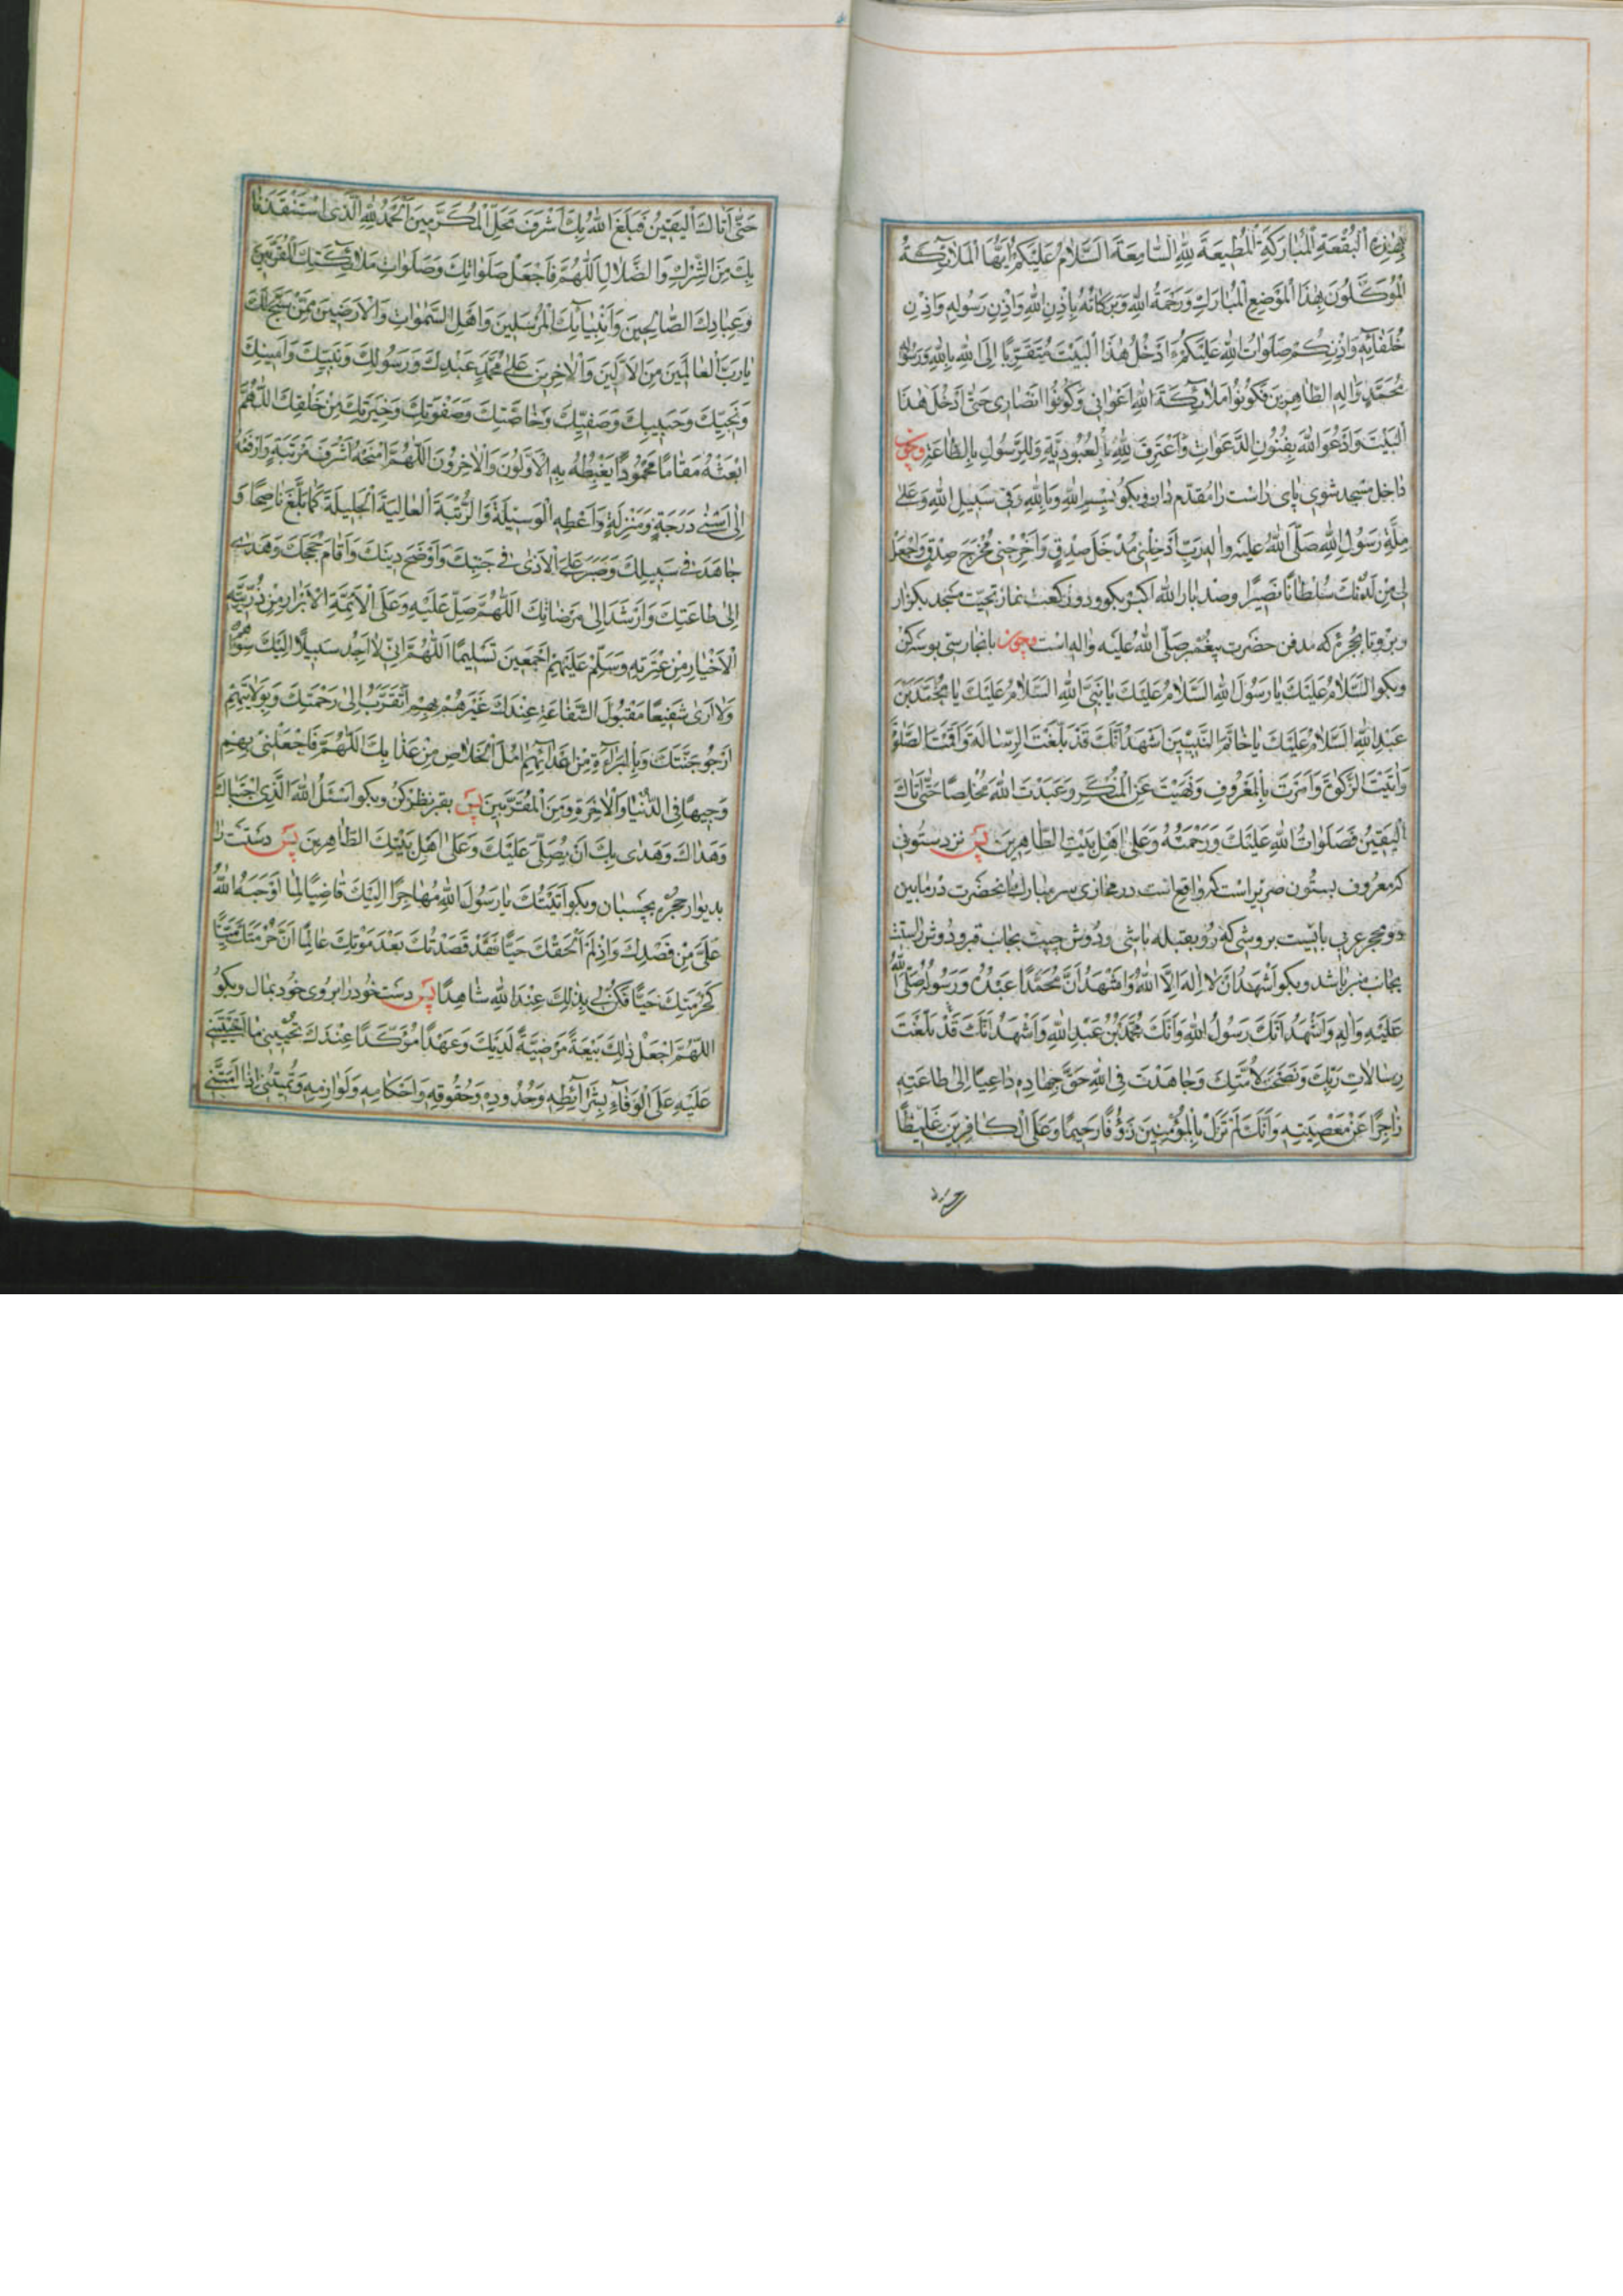 بِهٰذِهِ الْبُقْعَةِ الْمُبٰارَكَةِ الْمُطِيعَةَ لِلّٰهِ السّٰامِعَةَ اَلسَّلٰامُ عَلَيْكُمْ اَيُّهَا الْمَلٰائِكَةُ
الْمُوَكَّلُونَ بِهٰذَا الْمَوْضِعِ الْمُبٰارَكِ وَرَحْمَةُ اللّٰهِ وَبَرَكٰاتُهُ بِاِذْنِ اللّٰهِ وَاِذْنِ رَسُولِهِ وَاِذْنِ
خُلَفٰائِهِ وَاِذْنِكُمْ صَلَوٰاتُ اللّٰهِ عَلَيْكُمْ ءَاَدْخُلُ هٰذَا الْبَيْتَ مُتَقَرِّبًا اِلَى اللّٰهِ بِاللّٰهِ وَرَسُولِهِ
مُحَمَّدٍ وَاٰلِهِ الطّٰاهِرِينَ فَكُونُوا مَلٰائِكَةَ اللّٰهِ اَعْوٰانِي وَكُونُوا اَنْصٰارِى حَتّٰى اَدْخُلَ هٰذَا
الْبَيْتَ وَاَدْعُوَ اللّٰهَ بِفُنُونِ الدَّعَوٰاتِ وَاَعْتَرِفَ لِلّٰهِ بِالْعُبُودِيَّةِ وَلِلرَّسُولِ بِالطّٰاعَةِ وچون
داخل مسجد شوى پاى راست را مقدّم دار وبكو بِسْمِ اللّٰهِ وَبِاللّٰهِ وَفِى سَبِيلِ اللّٰهِ وَعَلىٰ
مِلَّةِ رَسُولِ اللّٰهِ صَلَّى اللّٰهُ عَلَيْهِ وَاٰلِهِ رَبِّ اَدْخِلْنِى مُدْخَلَ صِدْقٍ وَاَخْرِجْنِى مُخْرَجَ صِدْقٍ وَاجْعَلْ
لِى مِنْ لَدُنْكَ سُلْطٰانًا نَصِيرًا وصد بار اللّٰه اكبر بكو ودو ركعت نماز تحيّت مسجد بكزار
وبرو تا بحجرۀ كه مدفن حضرت پيغمبر صلّى اللّٰه عليه واله است وچون بانجا رسى بوسه كن
وبكو السَّلٰامُ عَلَيْكَ يٰا رَسُولَ اللّٰهِ السَّلٰامُ عَلَيْكَ يٰا نَبِىَّ اللّٰهِ السَّلٰامُ عَلَيْكَ يٰا مُحَمَّدَ بْنَ
عَبْدِ اللّٰهِ السَّلٰامُ عَلَيْكَ يٰا خٰاتَمَ النَّبِيِّينَ اَشْهَدُ اَنَّكَ قَدْ بَلَّغْتَ الرِّسٰالَةَ وَاَقَمْتَ الصَّلٰوةَ
وَاٰتَيْتَ الزَّكٰوةَ وَاَمَرْتَ بِالْمَعْرُوفِ وَنَهَيْتَ عَنِ الْمُنْكَرِ وَعَبَدْتَ اللّٰهَ مُخْلِصًا حَتّٰى اَتٰاكَ
الْيَقِينُ فَصَلَوٰاتُ اللّٰهِ عَلَيْكَ وَرَحْمَتُهُ وَعَلىٰ اَهْلِ بَيْتِكَ الطّٰاهِرِينَ پس نزد ستونى
كه معروف بستون است كه واقع است در محاذى سر مبارك آنحضرت در مابين
دو محجر عربى بايست بروشى كه رو بقبله باشى ودوش چپت بجانب قبر ودوش راستت
بجانب منبر باشد وبكو اَشْهَدُ اَنْ لٰا اِلٰهَ اِلَّا اللّٰهُ وَاَشْهَدُ اَنَّ مُحَمَّدًا عَبْدُهُ وَرَسُولُهُ صَلَّى اللّٰهُ
عَلَيْهِ وَاٰلِهِ وَاَشْهَدُ اَنَّكَ رَسُولُ اللّٰهِ وَاَنَّكَ مُحَمَّدُ بْنُ عَبْدِ اللّٰهِ وَاَشْهَدُ اَنَّكَ قَدْ بَلَّغْتَ
رِسٰالٰاتِ رَبِّكَ وَنَصَحْتَ لِاُمَّتِكَ وَجٰاهَدْتَ فِى اللّٰهِ حَقَّ جِهٰادِهِ دٰاعِيًا اِلىٰ طٰاعَتِهِ
زٰاجِرًا عَنْ مَعْصِيَتِهِ وَاَنَّكَ لَمْ تَزَلْ بِالْمُؤْمِنِينَ رَؤُفًا رَحِيمًا وَعَلَى الْكٰافِرِينَ غَلِيظًا
حَتّٰى اَتٰاكَ الْيَقِينُ فَبَلَغَ اللّٰهُ بِكَ اَشْرَفَ مَحَلِّ الْمُكَرَّمِينَ اَلْحَمْدُ لِلّٰهِ الَّذِى اسْتَنْقَذَنٰا
بِكَ مِنَ الشِّرْكِ وَالضَّلٰالِ اَللّٰهُمَّ فَاجْعَلْ صَلَوٰاتِكَ وَصَلَوٰاتِ مَلٰائِكَتِكَ الْمُقَرَّبِينَ
وَعِبٰادِكَ الصّٰالِحِينَ وَاَنْبِيٰائِكَ الْمُرْسَلِينَ وَاَهْلِ السَّمٰوٰاتِ وَالْاَرَضِينَ مِمَّنْ سَبَّحَ لَكَ
يٰا رَبَّ الْعٰالَمِينَ مِنَ الْاَوَّلِينَ وَالْاٰخِرِينَ عَلىٰ مُحَمَّدٍ عَبْدِكَ وَرَسُولِكَ وَنَبِيِّكَ وَاَمِينِكَ
وَنَجِيِّكَ وَحَبِيبِكَ وَصَفِيِّكَ وَخٰاصَّتِكَ وَصَفْوَتِكَ وَخِيَرَتِكَ مِنْ خَلْقِكَ اَللّٰهُمَّ
ابْعَثْهُ مَقٰامًا مَحْمُودًا يَغْبِطُهُ بِهِ الْاَوَّلُونَ وَالْاٰخِرُونَ اَللّٰهُمَّ امْنَحْهُ اَشْرَفَ مَرْتَبَةٍ وَارْفَعْهُ
اِلىٰ اَسْنىٰ دَرَجَةٍ وَمَنْزِلَةٍ وَاَعْطِهِ الْوَسِيلَةَ وَالرُّتْبَةَ الْعٰالِيَةَ الْجَلِيلَةَ كَمٰا بَلَّغَ نٰاصِحًا وَ
جٰاهَدَ فِى سَبِيلِكَ وَصَبَرَ عَلَى الْاَذىٰ فِى جَنْبِكَ وَاَوْضَحَ دِينَكَ وَاَقٰامَ حُجَجَكَ وَهَدىٰ
اِلىٰ طٰاعَتِكَ وَاَرْشَدَ اِلىٰ مَرْضٰاتِكَ اَللّٰهُمَّ صَلِّ عَلَيْهِ وَعَلَى الْاَئِمَّةِ الْاَبْرٰارِ مِنْ ذُرِّيَّتِهِ
الْاَخْيٰارِ مِنْ عِتْرَتِهِ وَسَلِّمْ عَلَيْهِمْ اَجْمَعِينَ تَسْلِيمًا اَللّٰهُمَّ اِنِّى لٰا اَجِدُ سَبِيلًا اِلَيْكَ سِوٰاهُمْ
وَلٰا اَرىٰ شَفِيعًا مَقْبُولَ الشَّفٰاعَةِ عِنْدَكَ غَيْرَهُمْ بِهِمْ اَتَقَرَّبُ اِلىٰ رَحْمَتِكَ وَبِوَلٰايَتِهِمْ
اَرْجُو جَنَّتَكَ وَبِالْبَرٰاءَةِ مِنْ اَعْدٰائِهِمْ اٰمُلُ الْخَلٰاصَ مِنْ عَذٰابِكَ اَللّٰهُمَّ فَاجْعَلْنِى بِهِمْ
وَجِيهًا فِى الدُّنْيٰا وَالْاٰخِرَةِ وَمِنَ الْمُقَرَّبِينَ پس بقبر نظر كن وبكو اَسْئَلُ اللّٰهَ الَّذِى اجْتَبٰاكَ
وَهَدٰاكَ وَهَدىٰ بِكَ اَنْ يُصَلِّىَ عَلَيْكَ وَعَلىٰ اَهْلِ بَيْتِكَ الطّٰاهِرِينَ پس دستت را
بديوار حجره بچسبان وبكو اَتَيْتُكَ يٰا رَسُولَ اللّٰهِ مُهٰاجِرًا اِلَيْكَ قٰاضِيًا لِمٰا اَوْجَبَهُ اللّٰهُ
عَلَىَّ مِنْ قَصْدِكَ وَاِذْ لَمْ اَلْحَقْكَ حَيًّا فَقَدْ قَصَدْتُكَ بَعْدَ مَوْتِكَ عٰالِمًا اَنَّ حُرْمَتَكَ مَيِّتًا
كَحُرْمَتِكَ حَيًّا فَكُنْ لِى بِذٰلِكَ عِنْدَ اللّٰهِ شٰاهِدًا پس دست خود را بروى خود بمال وبكو
اَللّٰهُمَّ اجْعَلْ ذٰلِكَ بَيْعَةً مَرْضِيَّةً لَدَيْكَ وَعَهْدًا مُؤَكَّدًا عِنْدَكَ تُحْيِينِى مٰا اَحْيَيْتَنِى
عَلَيْهِ عَلَى الْوَفٰاءِ بِشَرٰائِطِهِ وَحُدُودِهِ وَحُقُوقِهِ وَاَحْكٰامِهِ وَلَوٰازِمِهِ وَتُمِيتُنِى اِذٰا اَمَتَّنِى